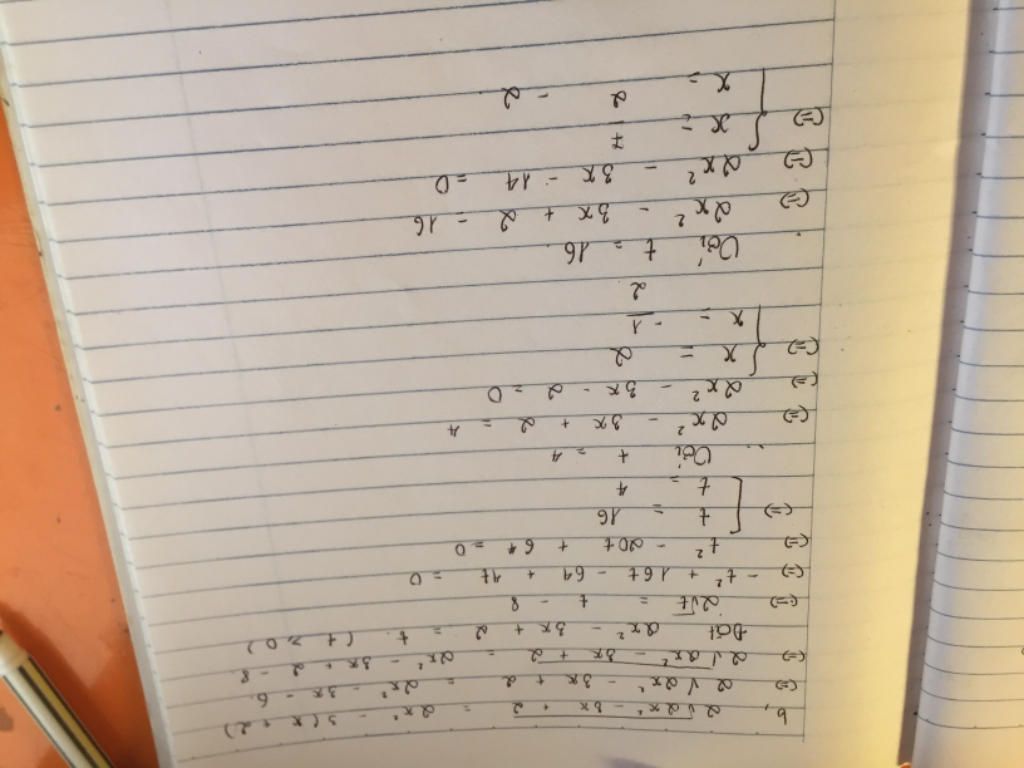 b, 2√2x² - 3x + 2 = 2x² - 3(x + 2)
(=) 2√2x² - 3x + 2 = 2x² - 3x - 6
(=) 2√2x² - 3x + 2 = 2x² - 3x + 2 - 8
Đặt 2x² - 3x + 2 = t (t ≥ 0)
(=) 2√t = t - 8
(=) - t² + 16t - 64 + 4t = 0
(=) t² - 20t + 64 = 0
(=) [ t = 16
t = 4
Với t = 4
(=) 2x² - 3x + 2 = 4
(=) 2x² - 3x - 2 = 0
(=) { x = 2
x = -1/2
Với t = 16
(=) 2x² - 3x + 2 = 16
(=) 2x² - 3x - 14 = 0
(=) { x = 7/2
x = -2